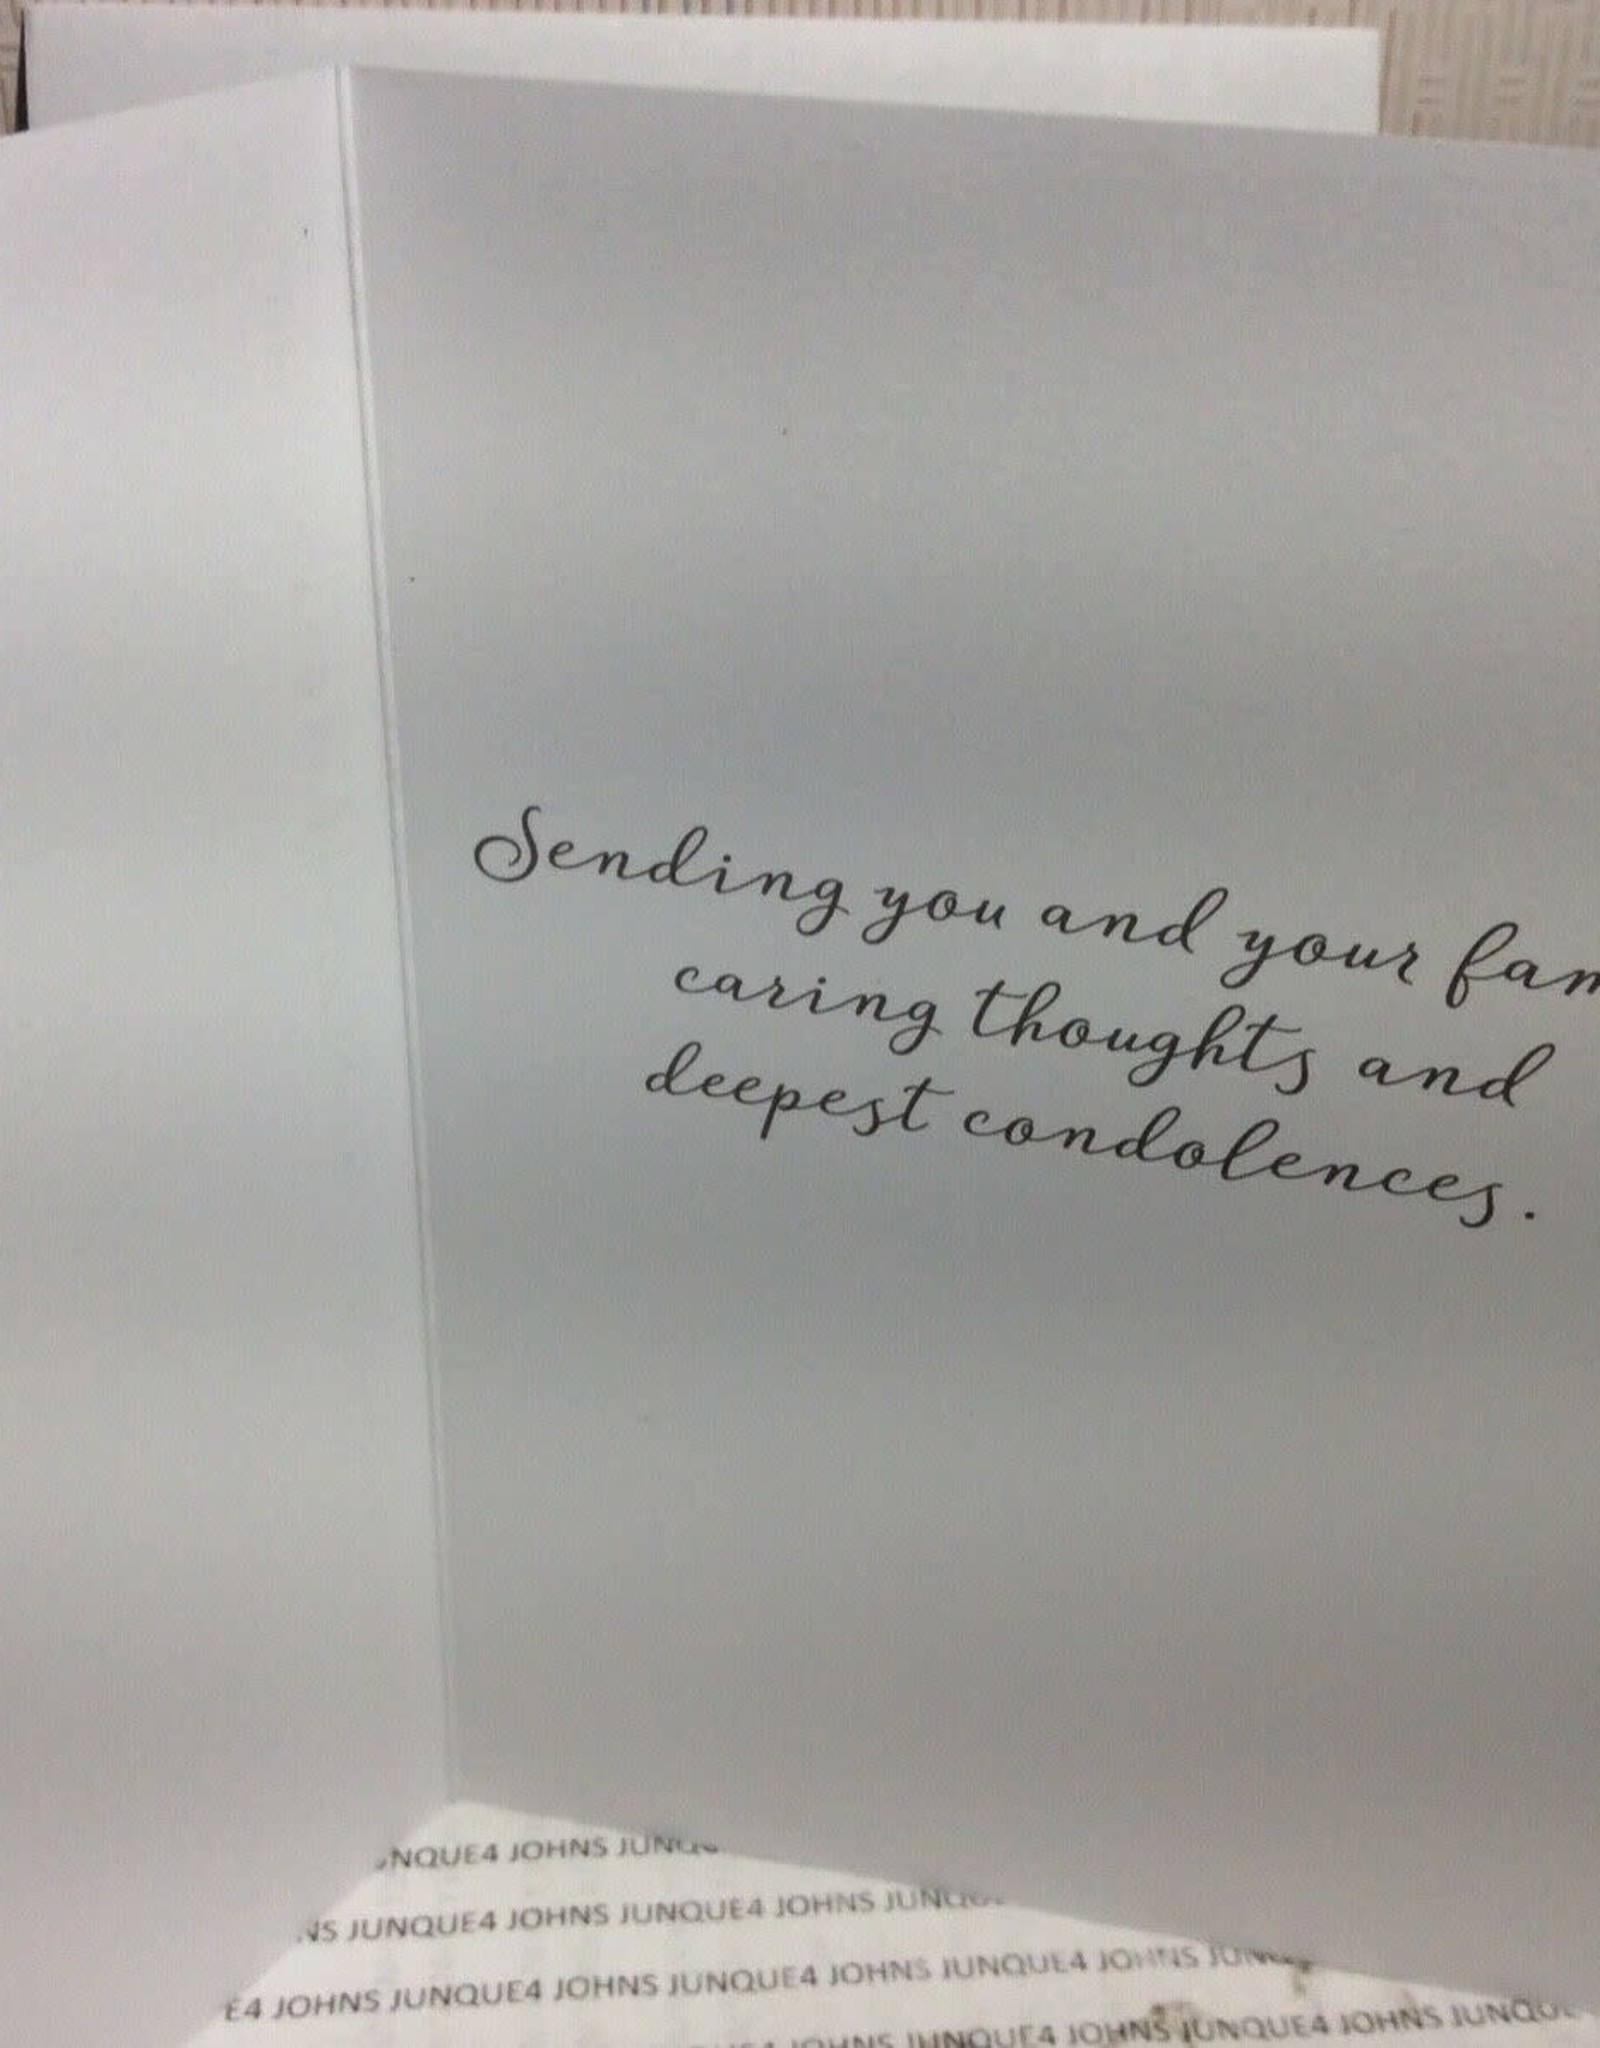 Sending you and your fam
caring thoughts and
deepest condolences.
NQUE4 JOHNS JUNQU
NS JUNQUE4 JOHNS JUNQUE4 JOHNS JUNQU
E4 JOHNS JUNQUE4 JOHNS JUNQUE4 JOHNS JUNQUE4 JOHNS JUN
JOHNS JUNQUE4 JOHNS JUNQUE4 JOHNS JUNQUE